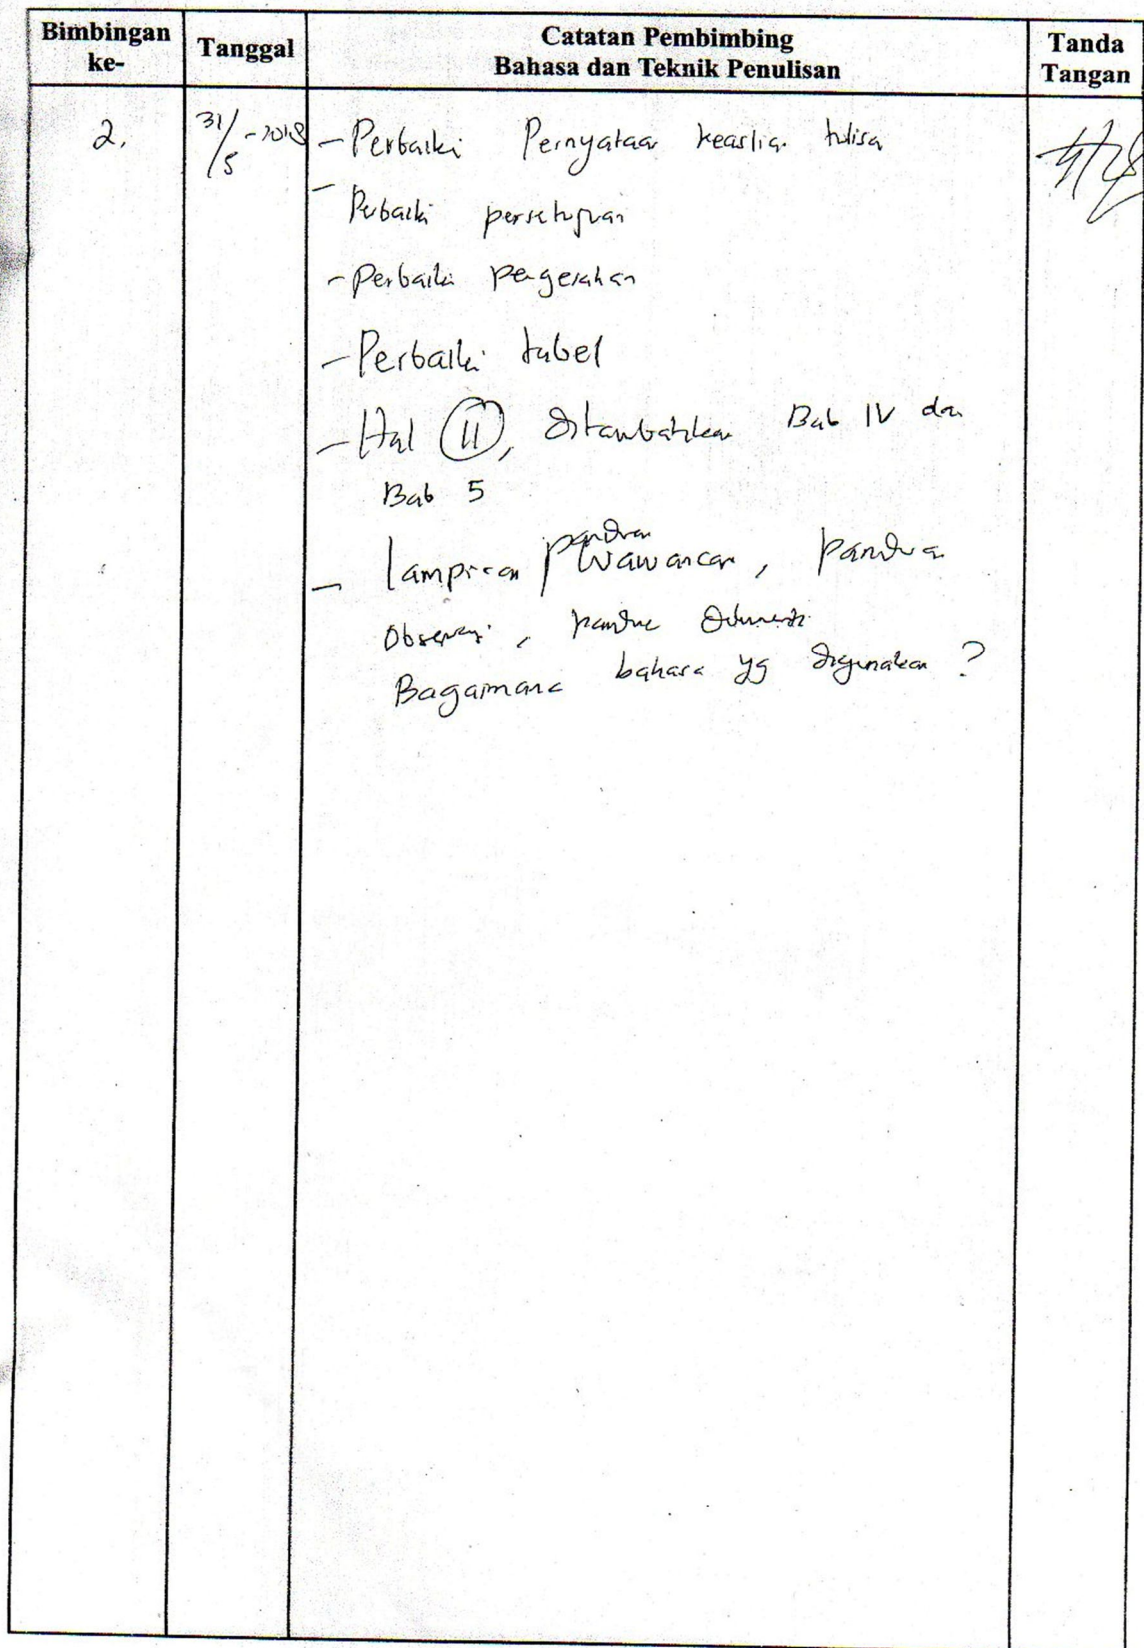 Bimbingan ke-
Tanggal
Catatan Pembimbing
Bahasa dan Teknik Penulisan
Tanda Tangan
2.
31/5-2018
- Perbaiki Pernyataan keaslian tulisan
- Perbaiki persetujuan
- Perbaiki pengesahan
- Perbaiki tabel
- Hal 11, ditambahkan Bab IV dan
Bab 5
- lampiran panduan wawancara, panduan
Observasi, panduan
Bagaimana bahasa yg digunakan ?